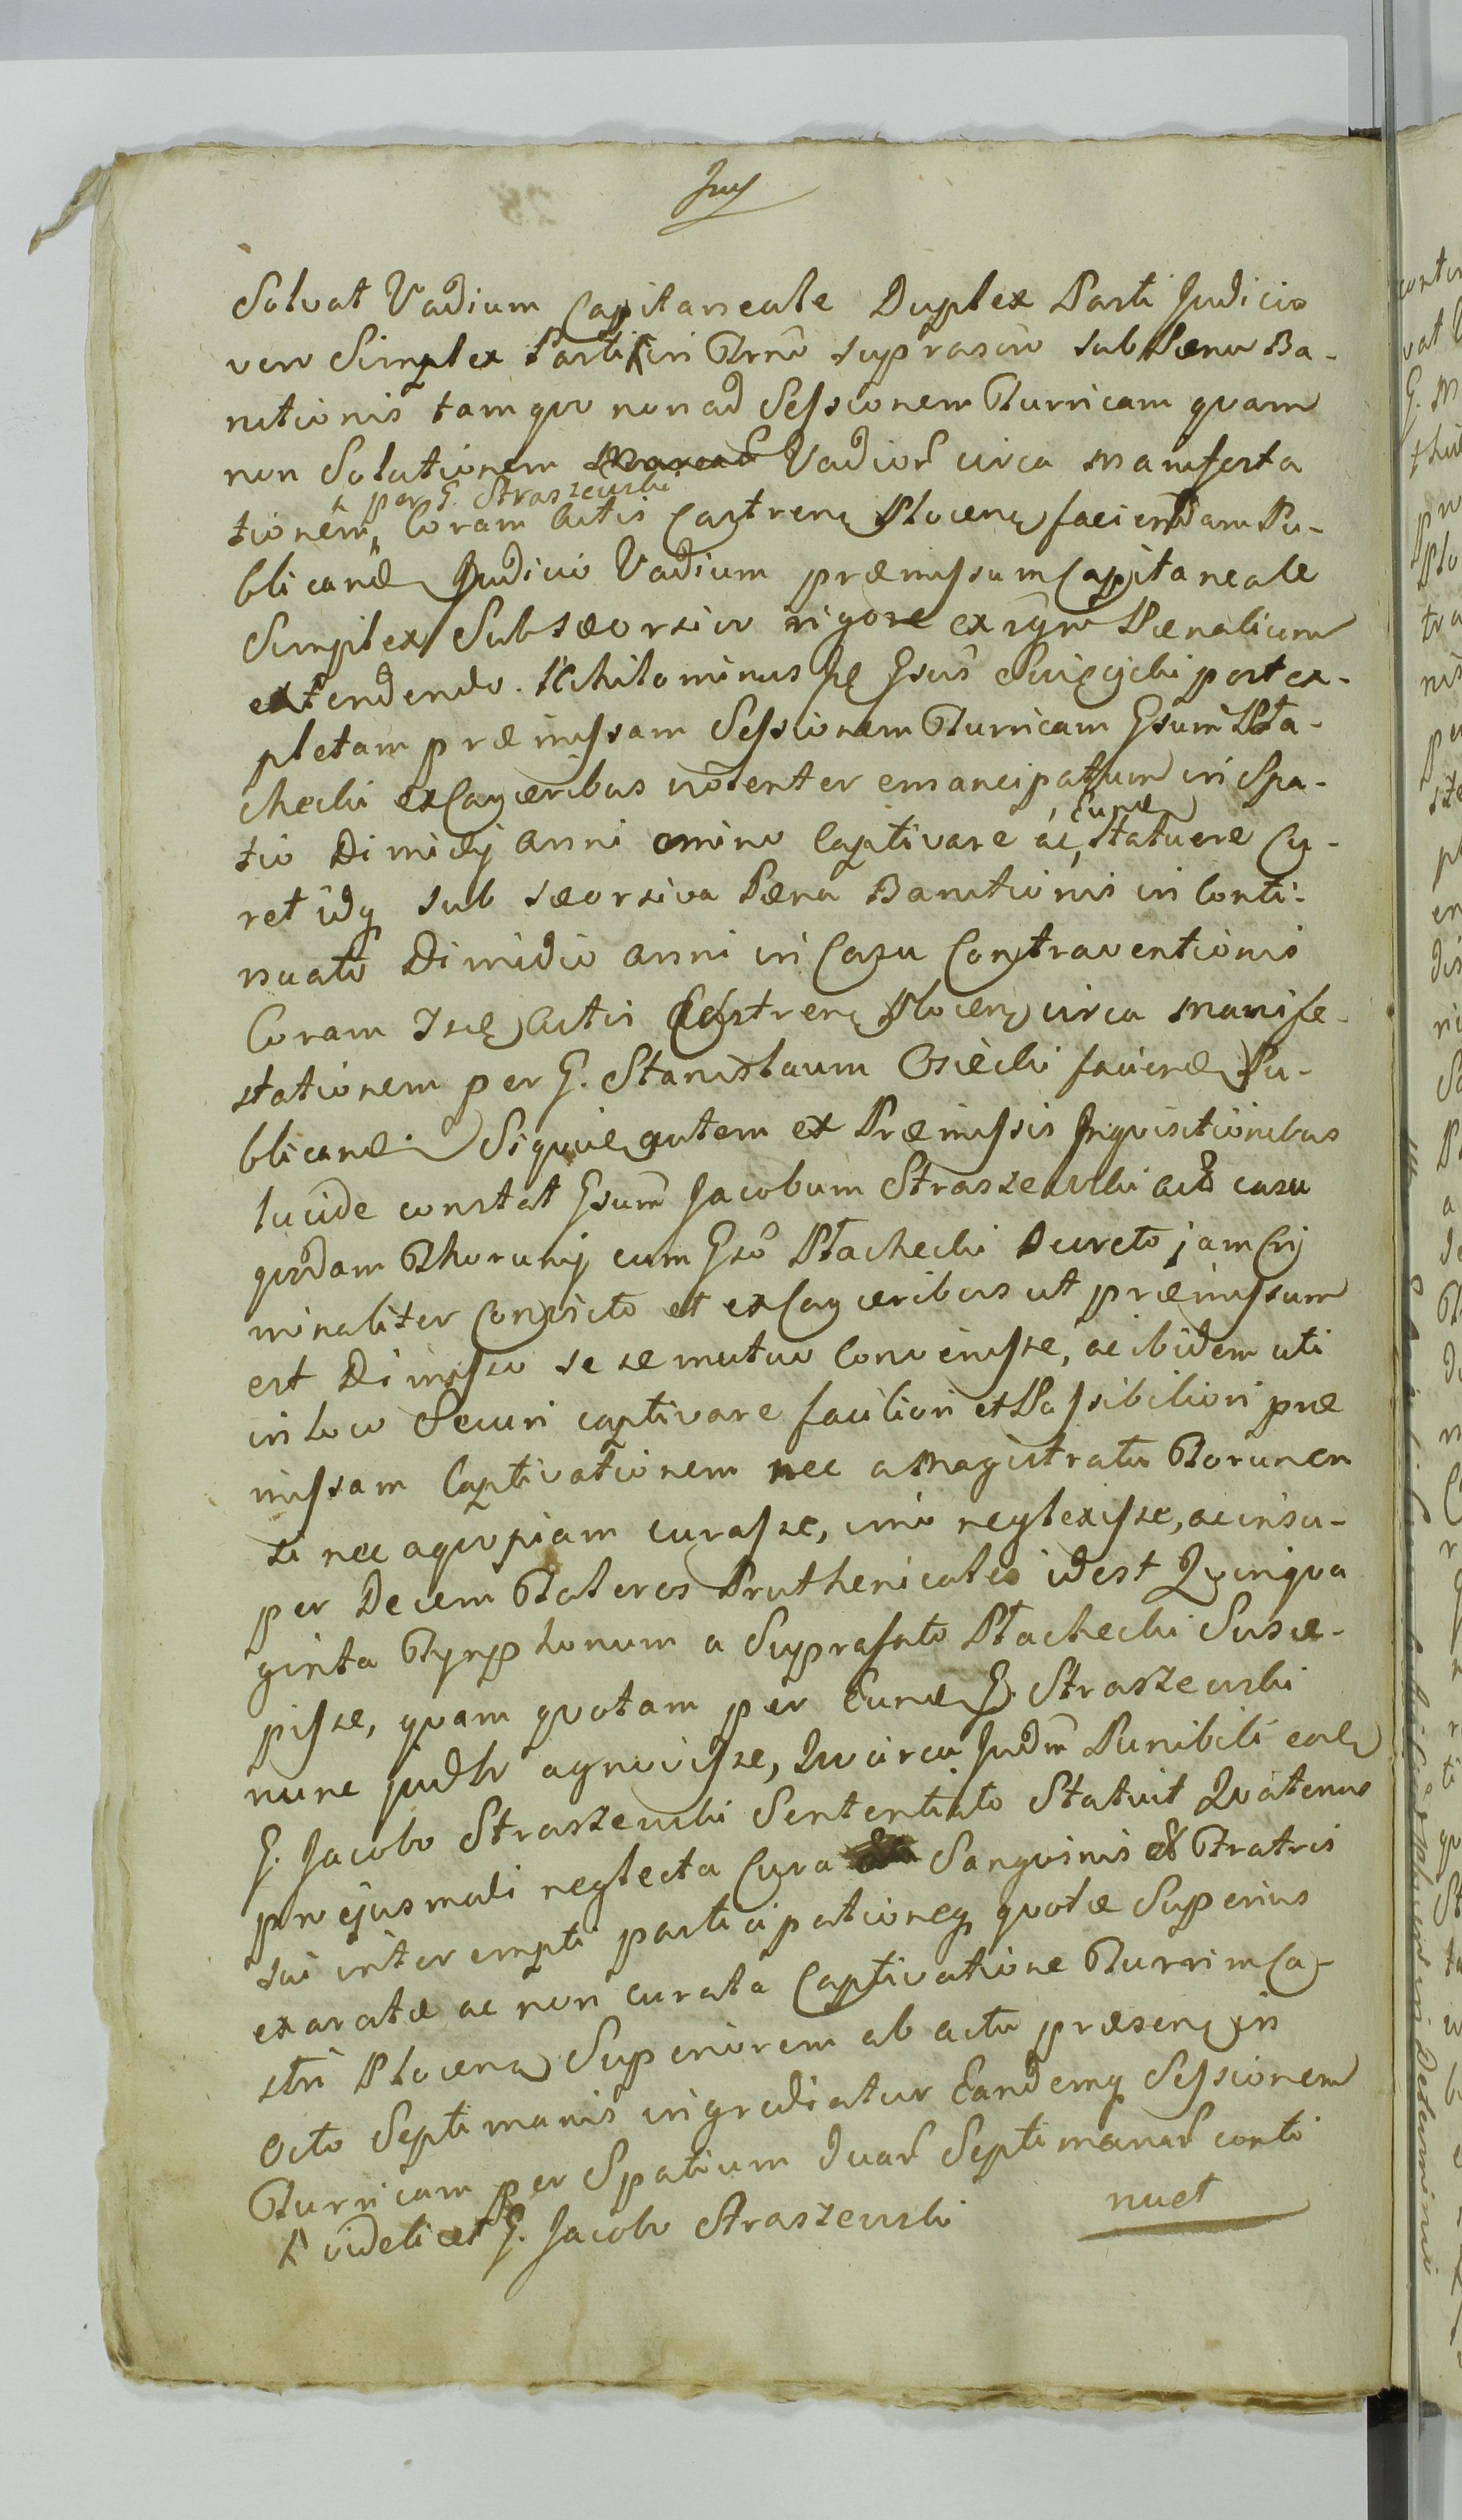 Solvat Vadium Capitaneale Duplex Parti Judicio
vero Simplex Parti in Trnô suprascrô sub Pæna Ba-
nitionis tam qvo non ad Sessionem Turricam qvam
non Solutionem Vadior circa manifesta
per G. Straszewski
tionem Coram Actis Castren Plocen faciendam Pu-
blicand Judicio Vadium præmissum Capitaneale
Simplex Sub sæorsivo rigore Pænalium
extendendo. Nihilominus Gsus Swięcicki post ex-
pletam præmissam Sessionem Turricam Gsum Płta-
checki ex Carceribus nôlenter emancipatum in Spa-
Eund
tio Dimidij Anni omnino Captivare ac Statuere Cu-
ret idq sub sæorsiva Pæna Banitionis in Conti-
nuato Dimidio Anni in Casu Contraventionis
Coram Actis Castren Plocen circa manife-
stationem per G. Stanislaum Osiecki faciend Pu-
blicand. Siqvid autem ex Præmissis Inqvisitionibus
lucide constat Gsum Jacobum Straszewski casu
qvodam Thorunij cum Gsô Płachecki Decreto jam Cri
minaliter Convicto et ex Carceribus ut præmissum
est Dimisso sese mutuo Convenisse, ac ibidem uti
in loco Securi captivare faciliori et Possibiliori præ
missam Captivationem nec a Magistratu Torunen
si nec aqvopiam curasse, imo neglexisse, ac insu-
per Decem Taleros Pruthenicales id est Qvinqva
ginta Tynphonum a Suprafato Płachecki Susce-
pisse, qvam qvotam per Eund G. Straszewski
nunc agnovisse, Qvocirca Judm Punibili eod
G. Jacobo Straszewski Sententiato Statuit Qvatenus
pro ejusmodi neglecta Cura Sangvinis et Fratris
sui interempti participationeq qvotæ Superius
exaratæ ac non curata Captivatione Turrim Ca-
stri Plocen Superiorem ab actu præsen in
Octo Septimanis ingrediatur Eandemq Sessionem
Turricam per Spatium duar Septimanar conti
nuet
videlicet G. Jacobo Straszewski